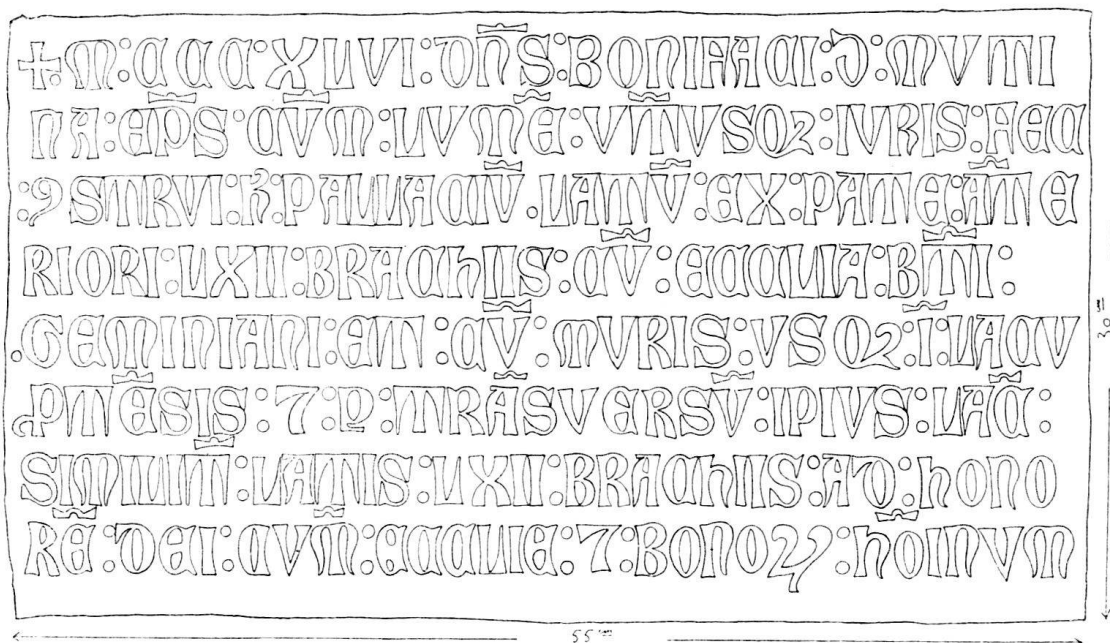 ✠ M : CCC XLVI : DN̄S : BONIFACI : D : MVTI
NA : EP̄S CV̄M : LVM̄E : VT̄VSQꝫ : IVRIS : FEC
: ꝯSTRVI : h : PALLACV̄ . LATV̄ : EX : PATE : ĀTE
RIORI : LXII : BRAChIIS : CV̄ : ECCLIA : BT̄I :
. GEMINIANI : ET : CV̄ : MVRIS : VSQꝫ : I : LACV
PTĒSIS : 7 : P : TRĀSVERSV̄ : IPIVS : LAC̄ :
SIMILIT̄ : LATIS : LXI : BRAChIIS : AD : hONO
RĒ : DEI : CVM̄ : ECCLIE : 7 : BONOꝝ : hOĪNVM
55 cm
30 cm